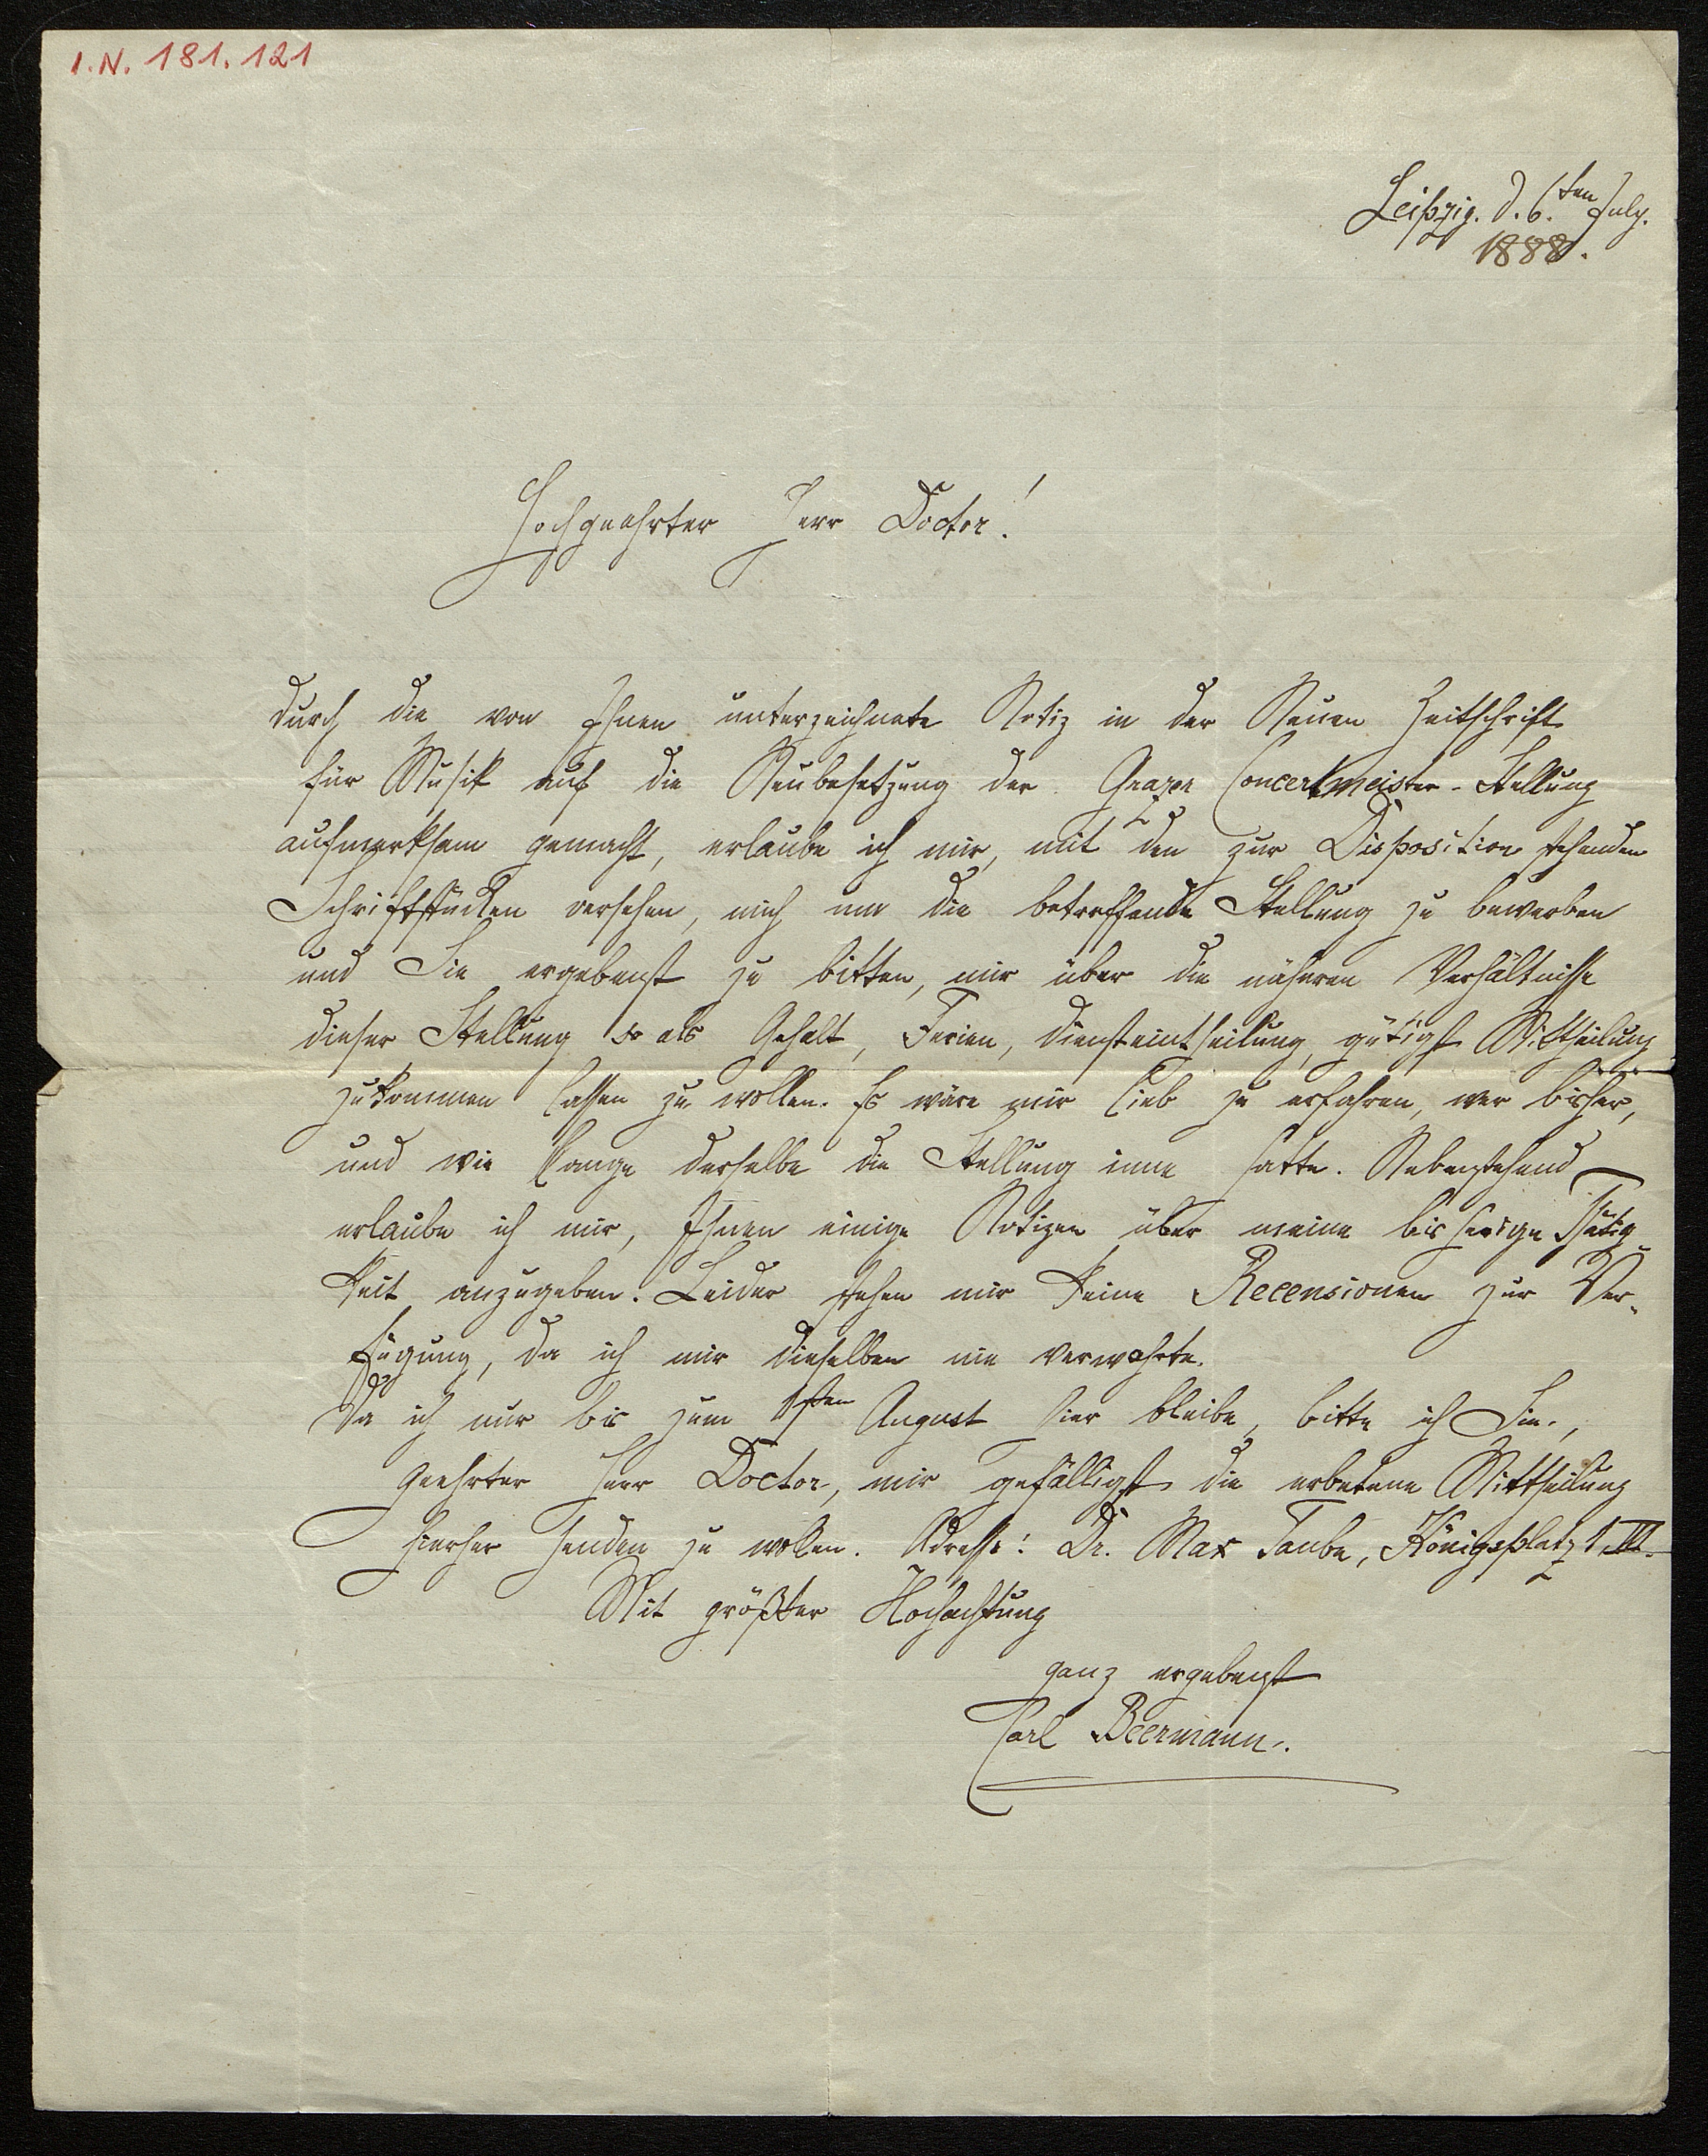 I.N. 181.121
Leipzig. d. 6.ten July.
1888.
Hochgeehrter Herr Doctor!
durch die von Ihnen unterzeichnete Notiz in der Neuen Zeitschrift
für Musik auf die Neubesetzung der Grazer Concertmeister-Stellung
aufmerksam gemacht, erlaube ich mir, mit den zur Disposition stehenden
Schriftstücken versehen, mich um die betreffende Stellung zu bewerben
und Sie ergebenst zu bitten, mir über die näheren Verhältnisse
dieser Stellung so als Gehalt, Ferien, Diensteintheilung, gütigst Mittheilung
zukommen lassen zu wollen. Es wäre mir lieb zu erfahren, wer bisher,
und wie lange derselbe die Stellung inne hatte. Nebenstehend
erlaube ich mir, Ihnen einige Notizen über meine bisherige Thätig
keit anzugeben. Leider stehen mir keine Recensionen zur Ver-
fügung, da ich mir dieselben nie verwahrte.
Da ich nur bis zum 1sten August hier bleibe, bitte ich Sie,
geehrter Herr Doctor, mir gefälligst die erbetene Mittheilung
hierher senden zu wollen. Adresse: Dr. Max Taube, Königsplatz 1 III.
Mit größter Hochachtung
ganz ergebenst
Carl Beermann.